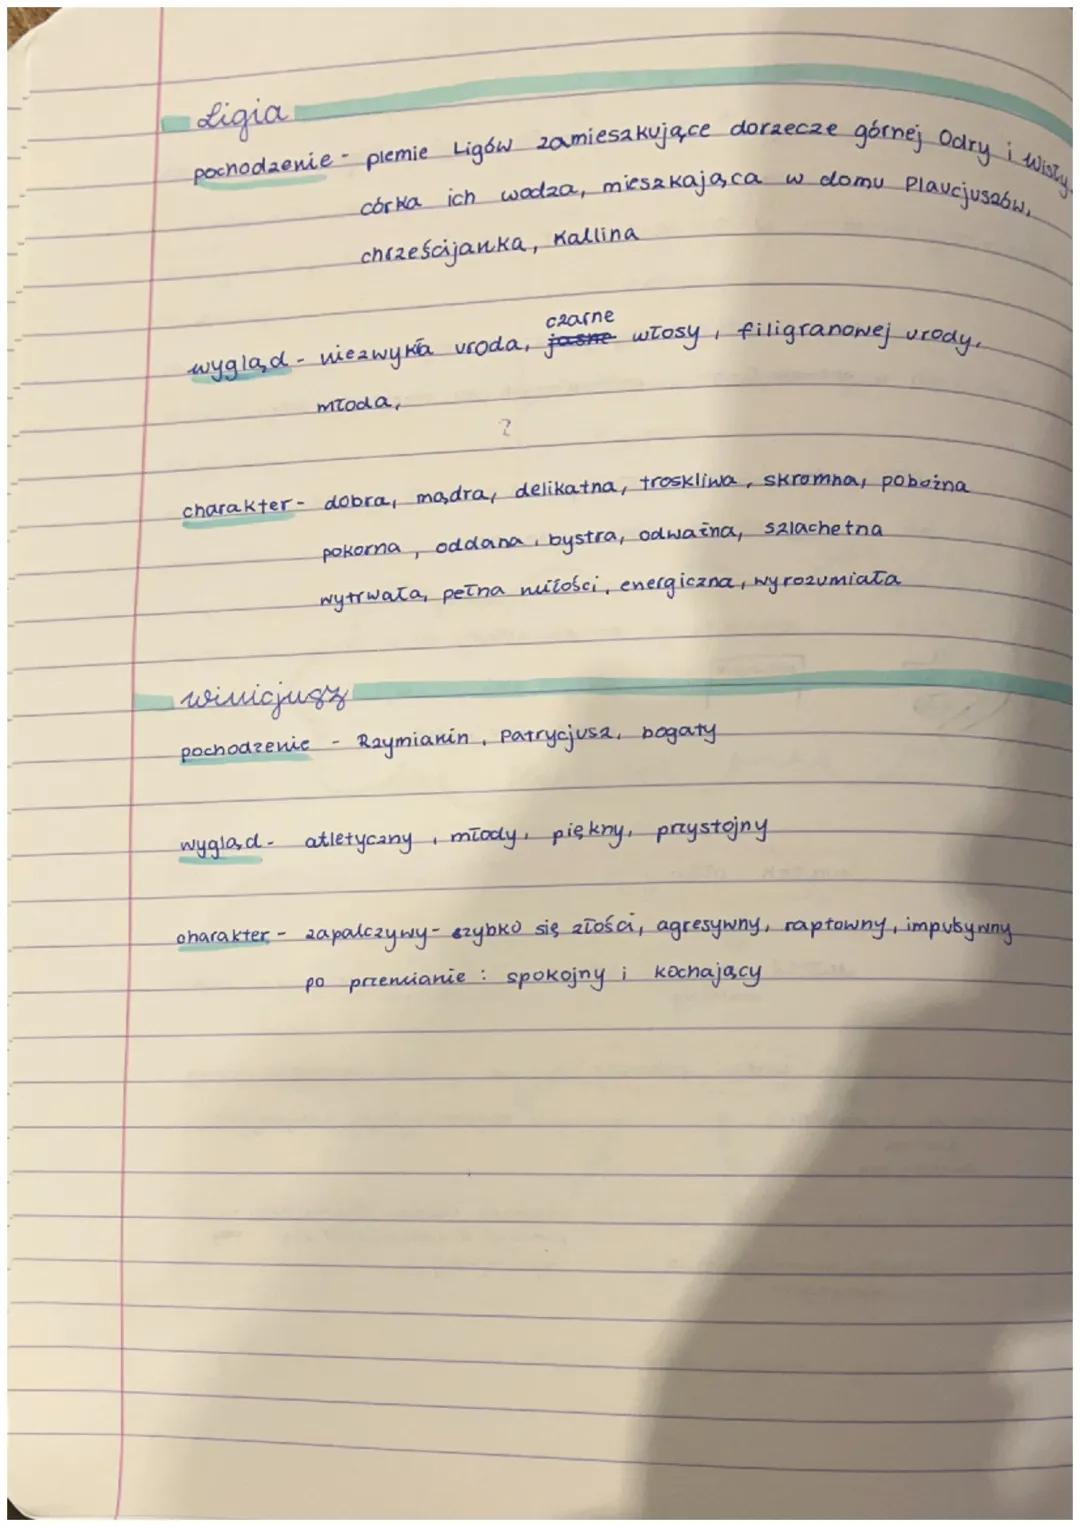 Ligia
pochodzenie - plemie Ligów zamieszkujące dorzecze górnej Odry i Wisły.
córka ich wodza, mieszkająca w domu Plaucjuszów,
chrześcijanka, Kallina
czarne
wygląd - niezwykła uroda, jasne włosy, filigranowej urody.
młoda,
?
charakter - dobra, mądra, delikatna, troskliwa, skromna, pobożna
pokorna, oddana, bystra, odważna, szlachetna
wytrwała, pełna miłości, energiczna, wyrozumiała
winicjusz
pochodzenie - Rzymianin, Patrycjusz, bogaty
wygląd - atletyczny, młody, piękny, przystojny
charakter - zapalczywy - szybko się złości, agresywny, raptowny, impulsywny
po przemianie : spokojny i kochający